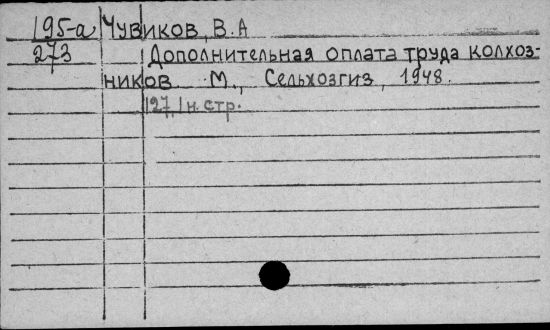 195-а Чувиков, В.А
273 Дополнительная оплата труда колхоз-
ников. М., Сельхозгиз, 1948.
127, 1 н. стр.